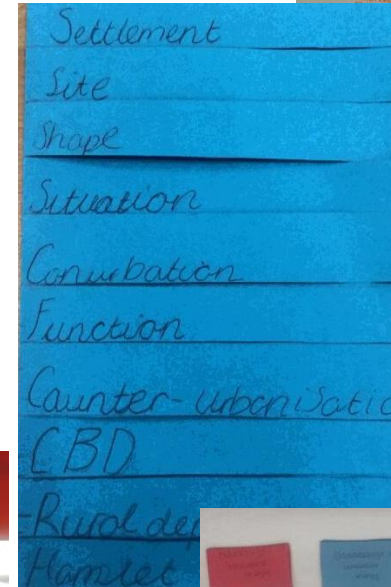 Settlement
Site
Shape
Situation
Conurbation
Function
Counter-urbanisatio
CBD
Rural dep
Hamlet